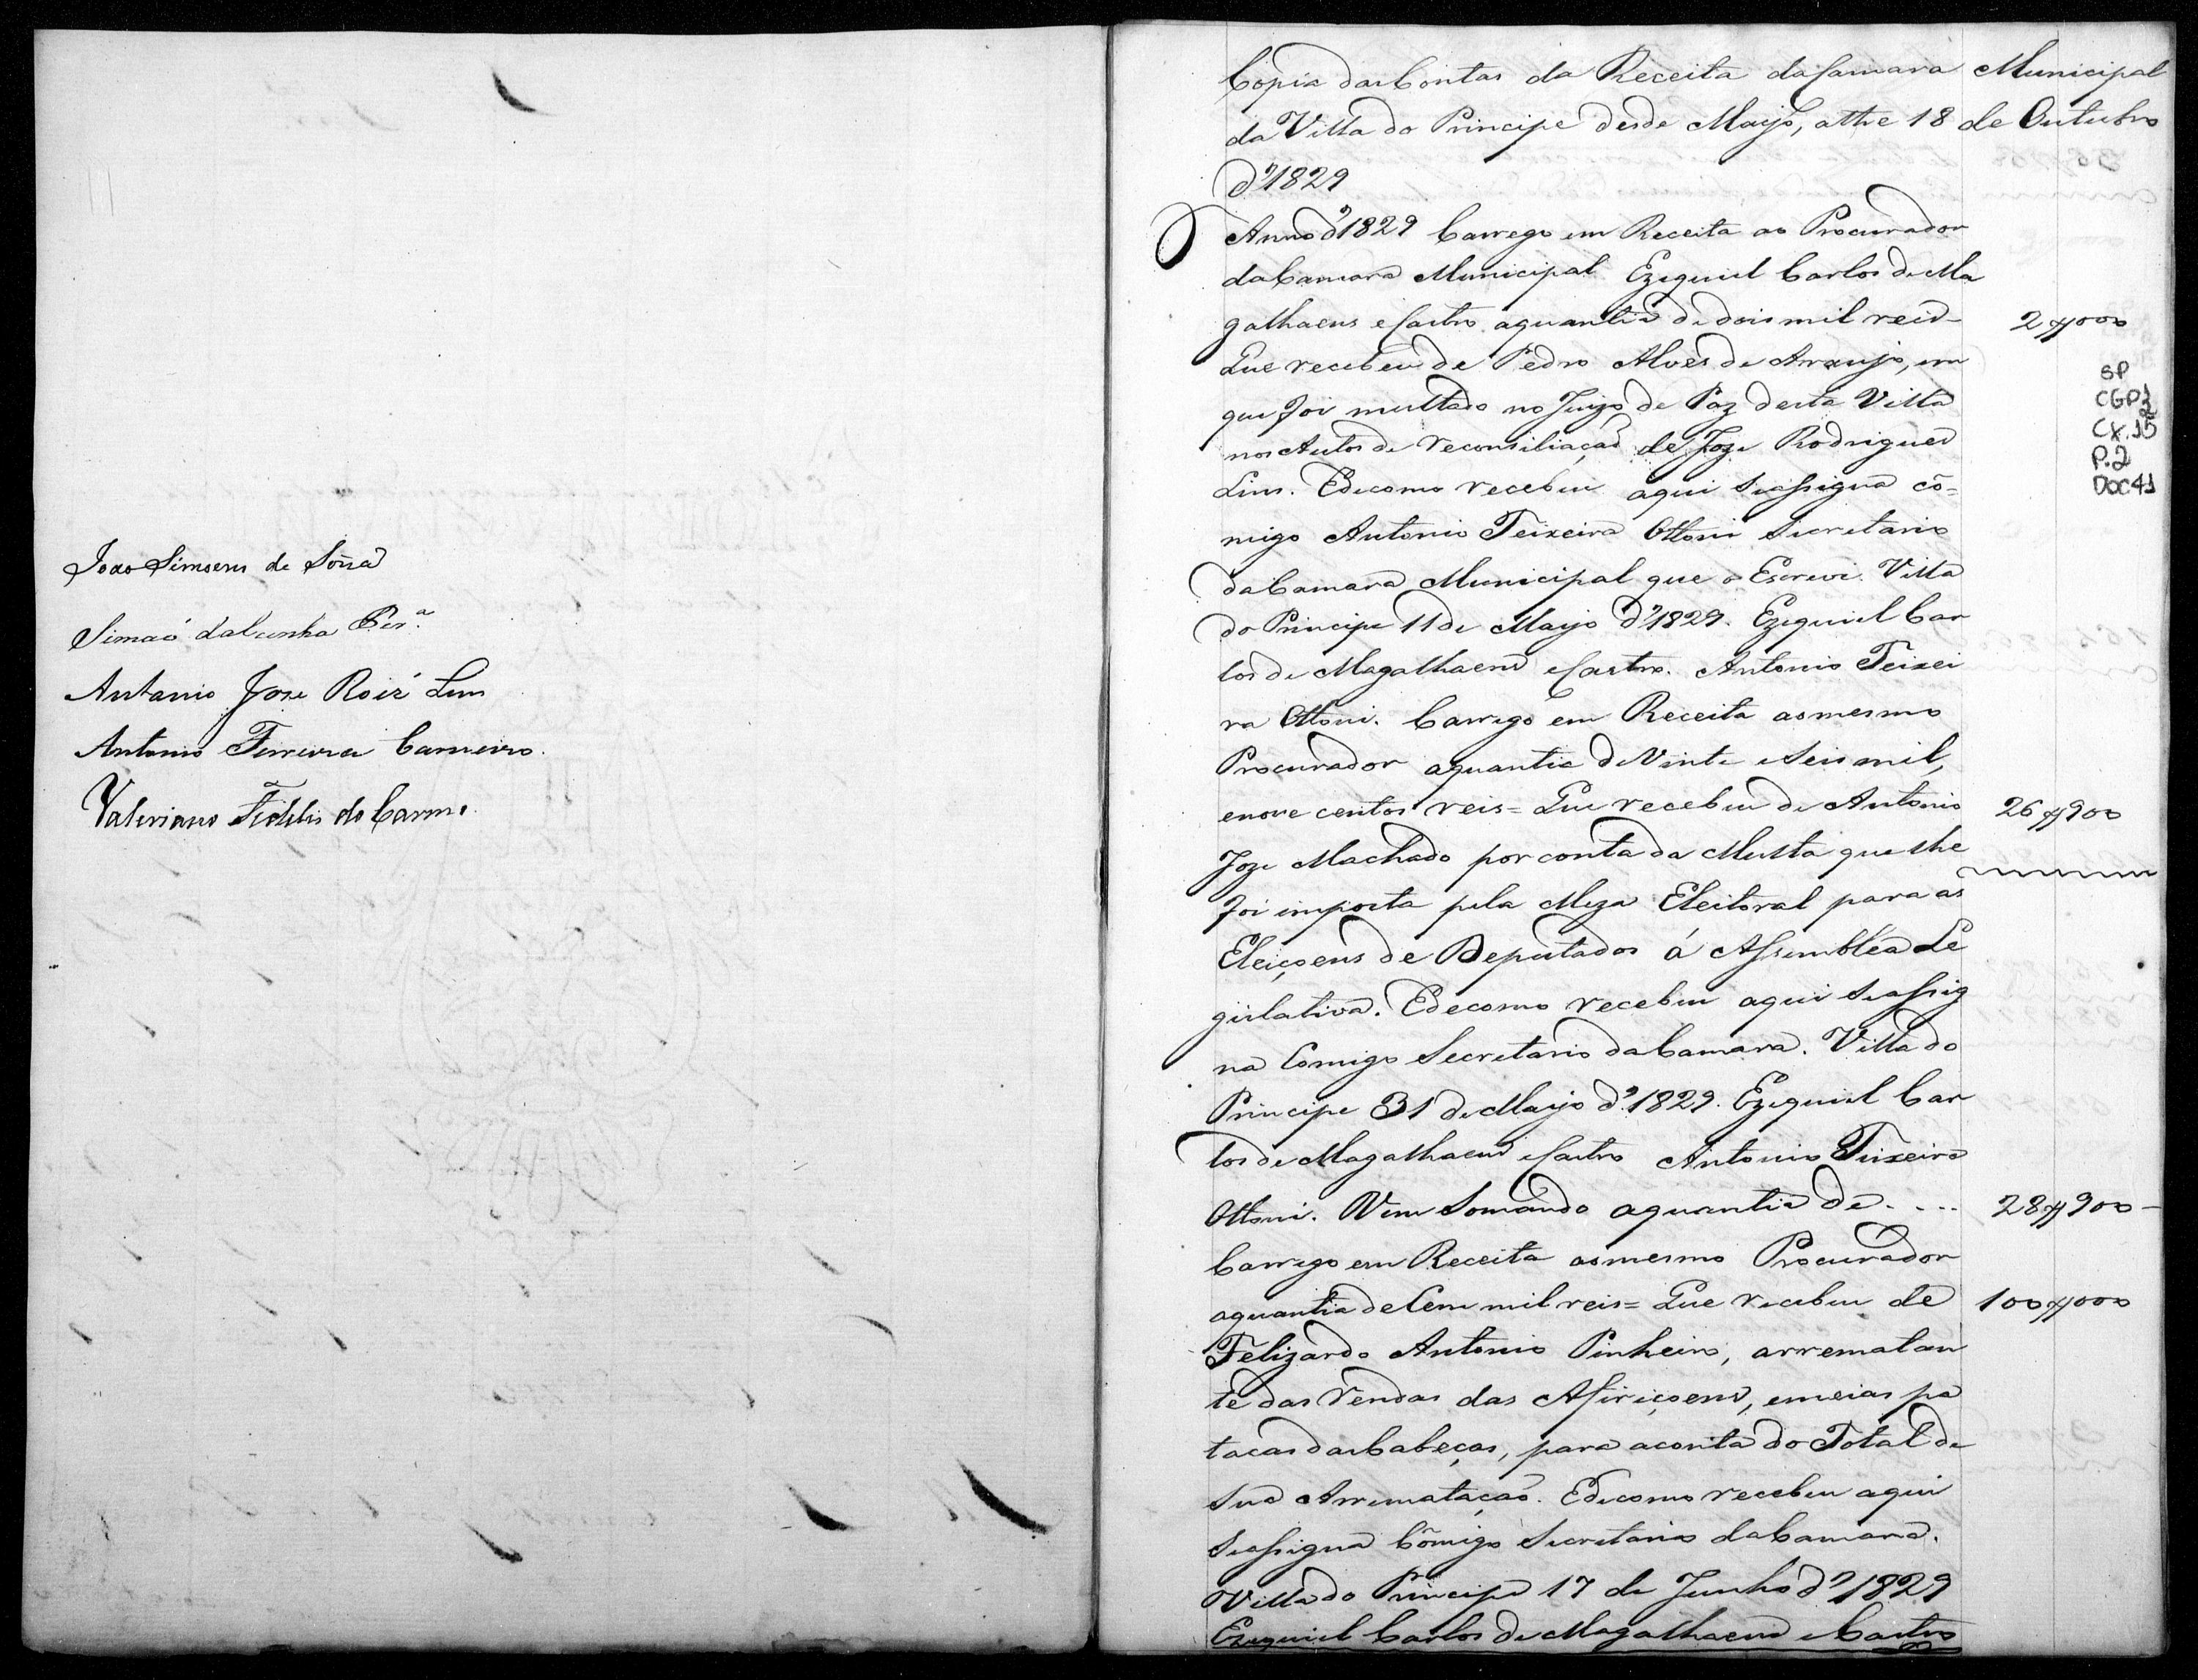 Joao Simoens de Souza
Simaõ daCunha Per.ª
Antonio Joze Roiz' Lins
Antonio Ferreira Carneiro.
Valeriano Fidelis do Carmo.
Copia dasContas da Receita daCamara Municipal
da Villa do Principe desde Mayo, athe 18 de Outubro
d'1829
Anno d'1829 Carrego em Receita ao Procurador
daCamara Municipal Ezequiel Carlos deMa
galhaens eCastro aquantia de dois mil reis- 2$000
Que recebeu de Pedro Alves de Araujo, em
que foi multado no Juizo de Paz desta Villa
nos Autos de reconsiliaçaõ de Joze Rodrigues
Lins. Edecomo recebeu aqui seassigna cõ=
migo Antonio Teixeira Ottoni Secretario
daCamara Municipal que o Escrevi. Villa
do Principe 11 de Mayo d'1829. Ezequiel Car
los de Magalhaens eCastro. Antonio Teixei
ra Ottoni. Carrego em Receita aomesmo
Procurador aquantia de Vinte eSeis mil,
enove centos reis= Que recebeu de Antonio 26$900
Joze Machado por conta da Multa que lhe
foi imposta pela Meza Eleitoral para as
Eleiçoens de Deputados á Assembléa Le
gislativa. Edecomo recebeu aqui seassig
na Comigo Secretario daCamara. Villa do
Principe 31 de Mayo d'1829. Ezequiel Car
los de Magalhaens eCastro Antonio Teixeira
Ottoni. Vem Somando aquantia de.... 28$900-
Carrego em Receita aomesmo Procurador
aquantia deCem mil reis= Que recebeu de 100$000
Felizardo Antonio Pinheiro, arrematan
te das Vendas das Afiriçoens, emeias pa
tacas dasCabeças, para aconta do Total de
sua Arremataçaõ. Edecomo recebeu aqui
seassigna Cõmigo Secretario daCamara.
Villa do Principe 17 de Junho d'1829
Ezequiel Carlos de Magalhaens eCastro
SP
CGP1
2
Cx.15
P.2
DOC41